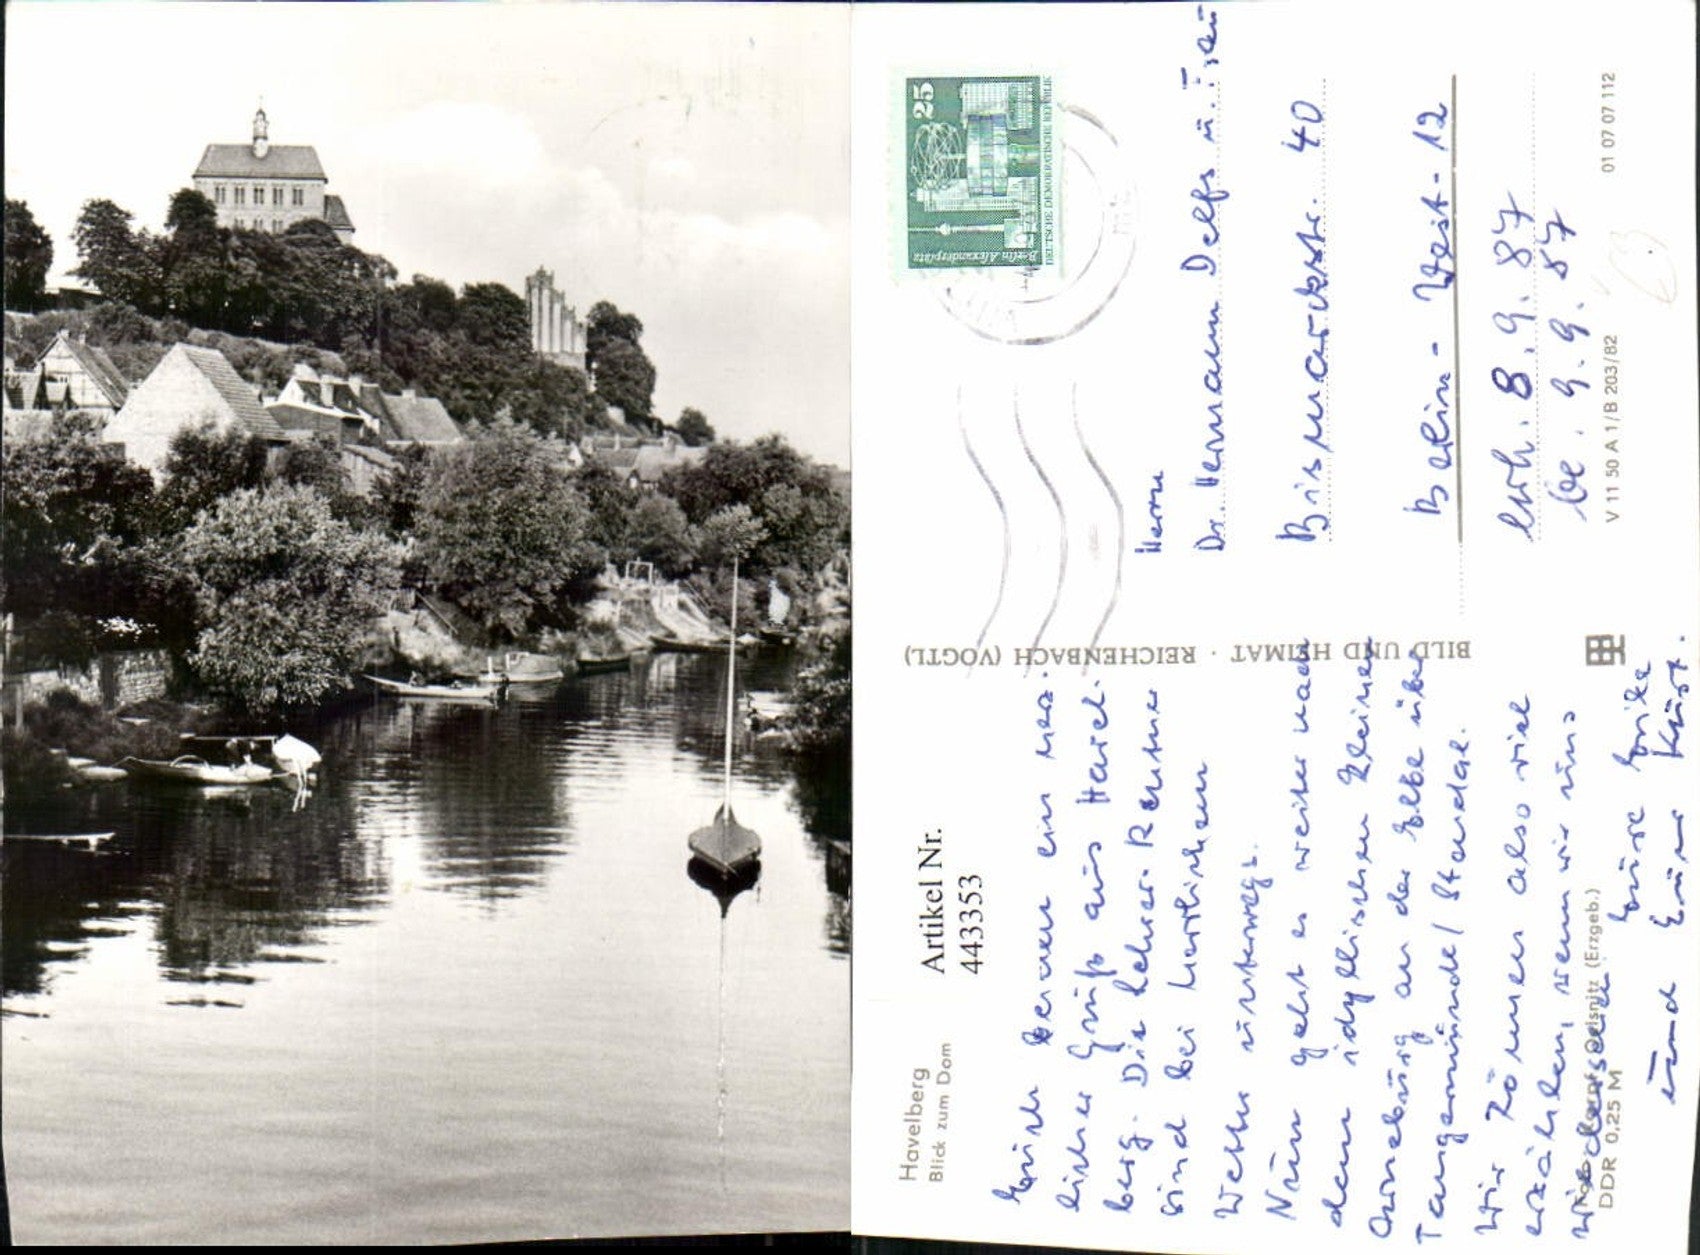 Havelberg
Blick zum Dom
Artikel Nr.
443353
Euch beiden ein herz-
licher Gruß aus Havel-
berg. Die Lehrer-Rentner
sind bei herrlichem
Wetter unterwegs.
Nun geht es weiter nach
dem idyllischen kleinen
Arneburg an der Elbe über
Tangermünde / Stendal.
Wir können also viel
erzählen, wenn wir uns
wiedersehen.
Eure Erike
und Euer Kurt.
Foto: Oelsnitz (Erzgeb.)
DDR 0,25 M
BILD UND HEIMAT · REICHENBACH (VOGTL)
25
Berlin, Alexanderplatz
DEUTSCHE DEMOKRATISCHE REPUBLIK
Herrn
Dr. Hermann Delfs u. Frau
Bismarckstr. 40
Berlin-West-12
erh. 8.9.87
be. 9.9.87
V 11 50 A 1/B 203/82
01 07 07 112